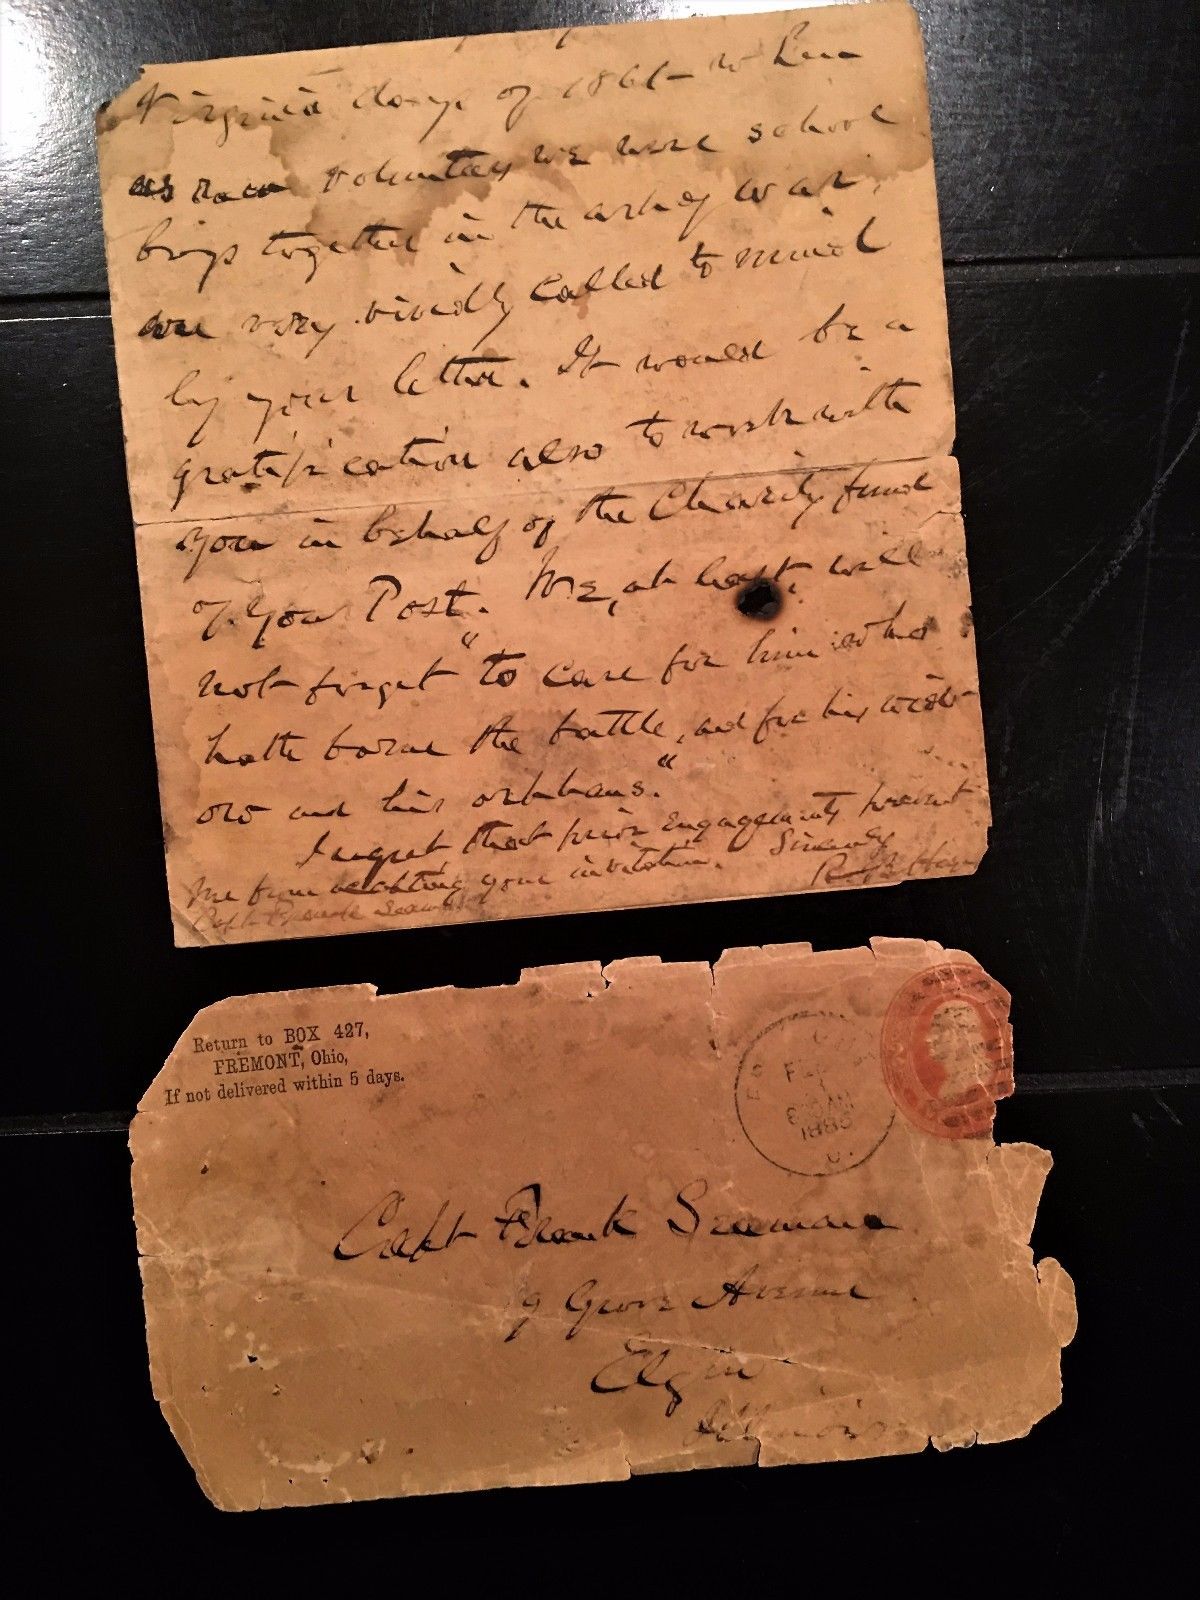 Virginia days of 1861 - when
as raw volunteers we were school
boys together in the art of war,
are very vividly called to mind
by your letter. It would be a
gratification also to work with
you in behalf of the Charity fund
of your Post. We, at least, will
not forget "to care for him who
hath borne the battle, and for his wid-
ow and his orphans."
I regret that prior engagements prevent
me from accepting your invitation. Sincerely
R B Hayes
Capt Frank Seaman
Return to BOX 427,
FREMONT, Ohio,
If not delivered within 5 days.
Capt Frank Seaman
19 Grove Avenue
Elgin
Illinois